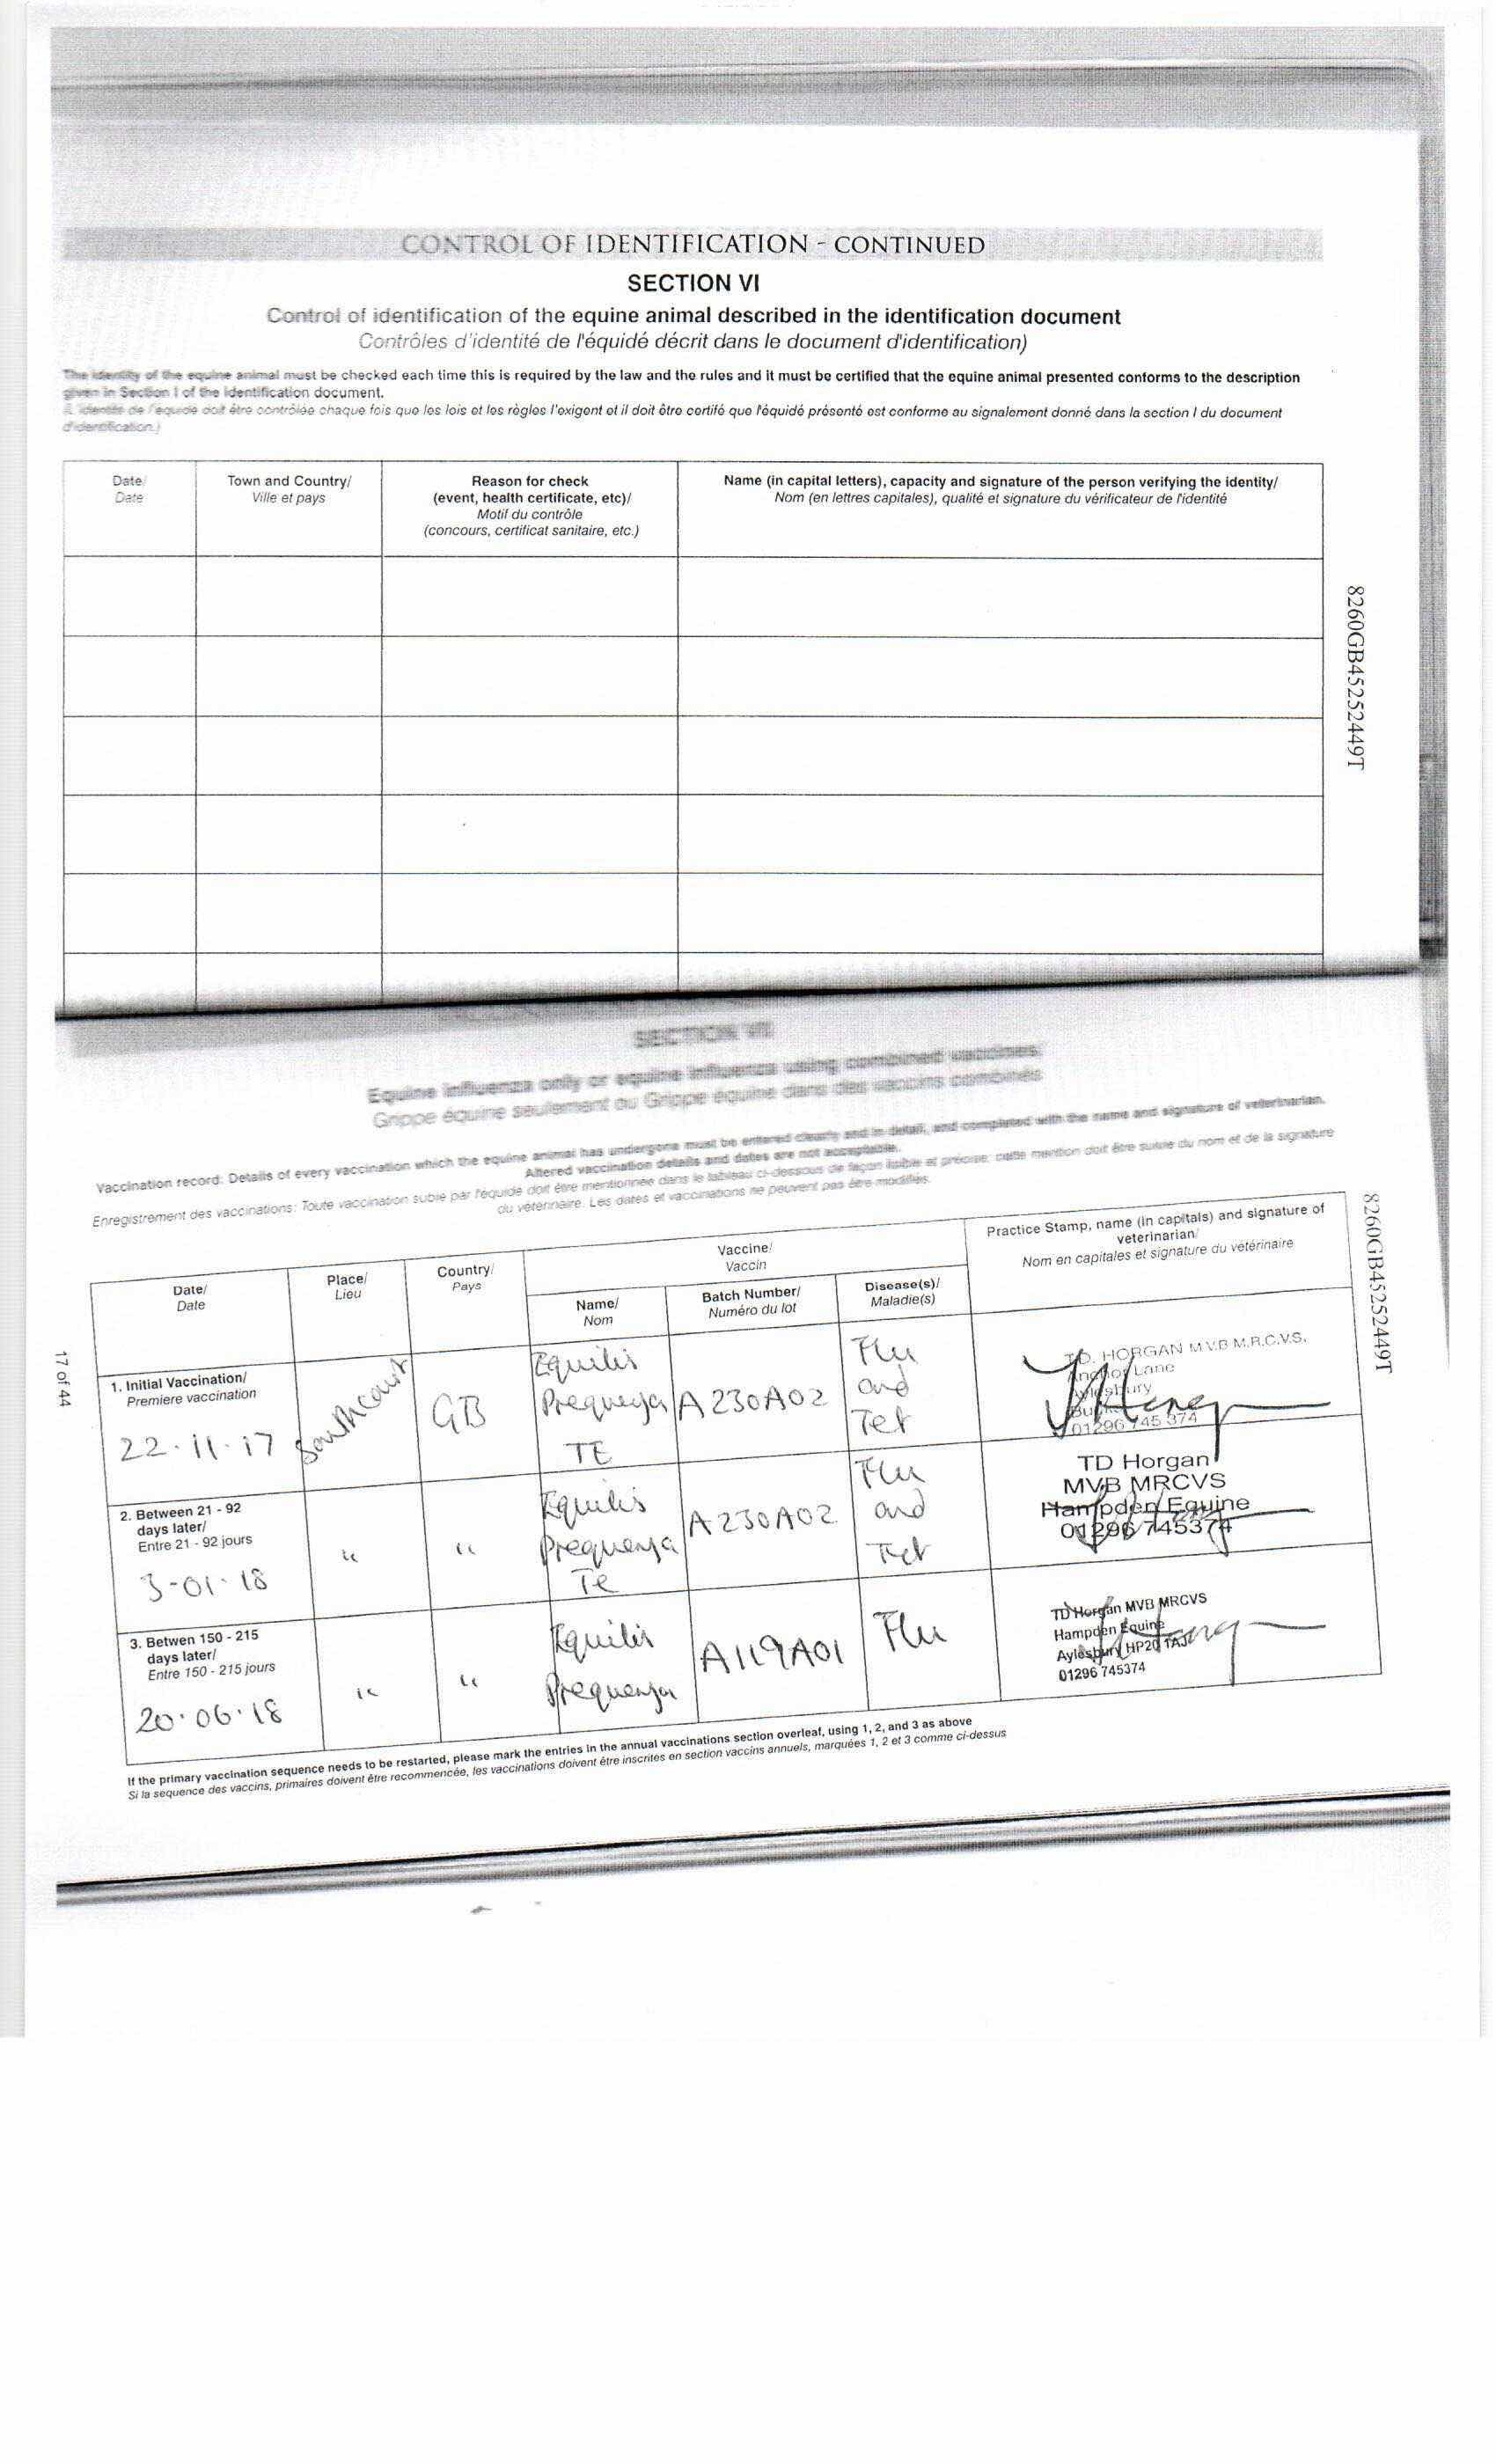 CONTROL OF IDENTIFICATION - CONTINUED
SECTION VI
Control of identification of the equine animal described in the identification document
Contrôles d'identité de l'équidé décrit dans le document d'identification)
The identity of the equine animal must be checked each time this is required by the law and the rules and it must be certified that the equine animal presented conforms to the description
given in Section I of the identification document.
(L'identité de l'equide doit être contrôlée chaque fois que les lois et les règles l'exigent et il doit être certifé que l'équidé présenté est conforme au signalement donné dans la section I du document
d'identification.)
Date/
Date
Town and Country/
Ville et pays
Reason for check
(event, health certificate, etc)/
Motif du contrôle
(concours, certificat sanitaire, etc.)
Name (in capital letters), capacity and signature of the person verifying the identity/
Nom (en lettres capitales), qualité et signature du vérificateur de l'identité
8260GB45252449T
SECTION VII
Equine influenza only or equine influenza using combined vaccines
Grippe équine seulement ou Grippe équine dans des vaccins combinés
Vaccination record: Details of every vaccination which the equine animal has undergone must be entered clearly and in detail, and completed with the name and signature of veterinarian.
Altered vaccination details and dates are not acceptable.
Enregistrement des vaccinations: Toute vaccination subie par l'equide doit être mentionnée dans le tableau ci-dessous de façon lisible et précise; cette mention doit être suivie du nom et de la signature
du veterinaire. Les dates et vaccinations ne peuvent pas être modifiés.
Date/
Date
Place/
Lieu
Country/
Pays
Vaccine/
Vaccin
Name/
Nom
Batch Number/
Numéro du lot
Disease(s)/
Maladie(s)
Practice Stamp, name (in capitals) and signature of
veterinarian/
Nom en capitales et signature du vetérinaire
8260GB45252449T
17 of 44
1. Initial Vaccination/
Premiere vaccination
22.11.17
Southcourt
GB
Equilis
Prequenza
TE
A230A02
Flu
and
Tet
T.D. HORGAN M.V.B M.R.C.V.S.
Anchor Lane
Aylesbury
01296 745 374
2. Between 21 - 92
days later/
Entre 21 - 92 jours
3-01-18
"
"
Equilis
Prequenza
Te
A230A02
Flu
and
Tet
TD Horgan
MVB MRCVS
Hampden Equine
01296 745374
3. Betwen 150 - 215
days later/
Entre 150 - 215 jours
20.06.18
"
"
Equilis
Prequenza
A119A01
Flu
TD Horgan MVB MRCVS
Hampden Equine
Aylesbury HP20 1AJ
01296 745374
If the primary vaccination sequence needs to be restarted, please mark the entries in the annual vaccinations section overleaf, using 1, 2, and 3 as above
Si la sequence des vaccins, primaires doivent être recommencée, les vaccinations doivent être inscrites en section vaccins annuels, marquées 1, 2 et 3 comme ci-dessus